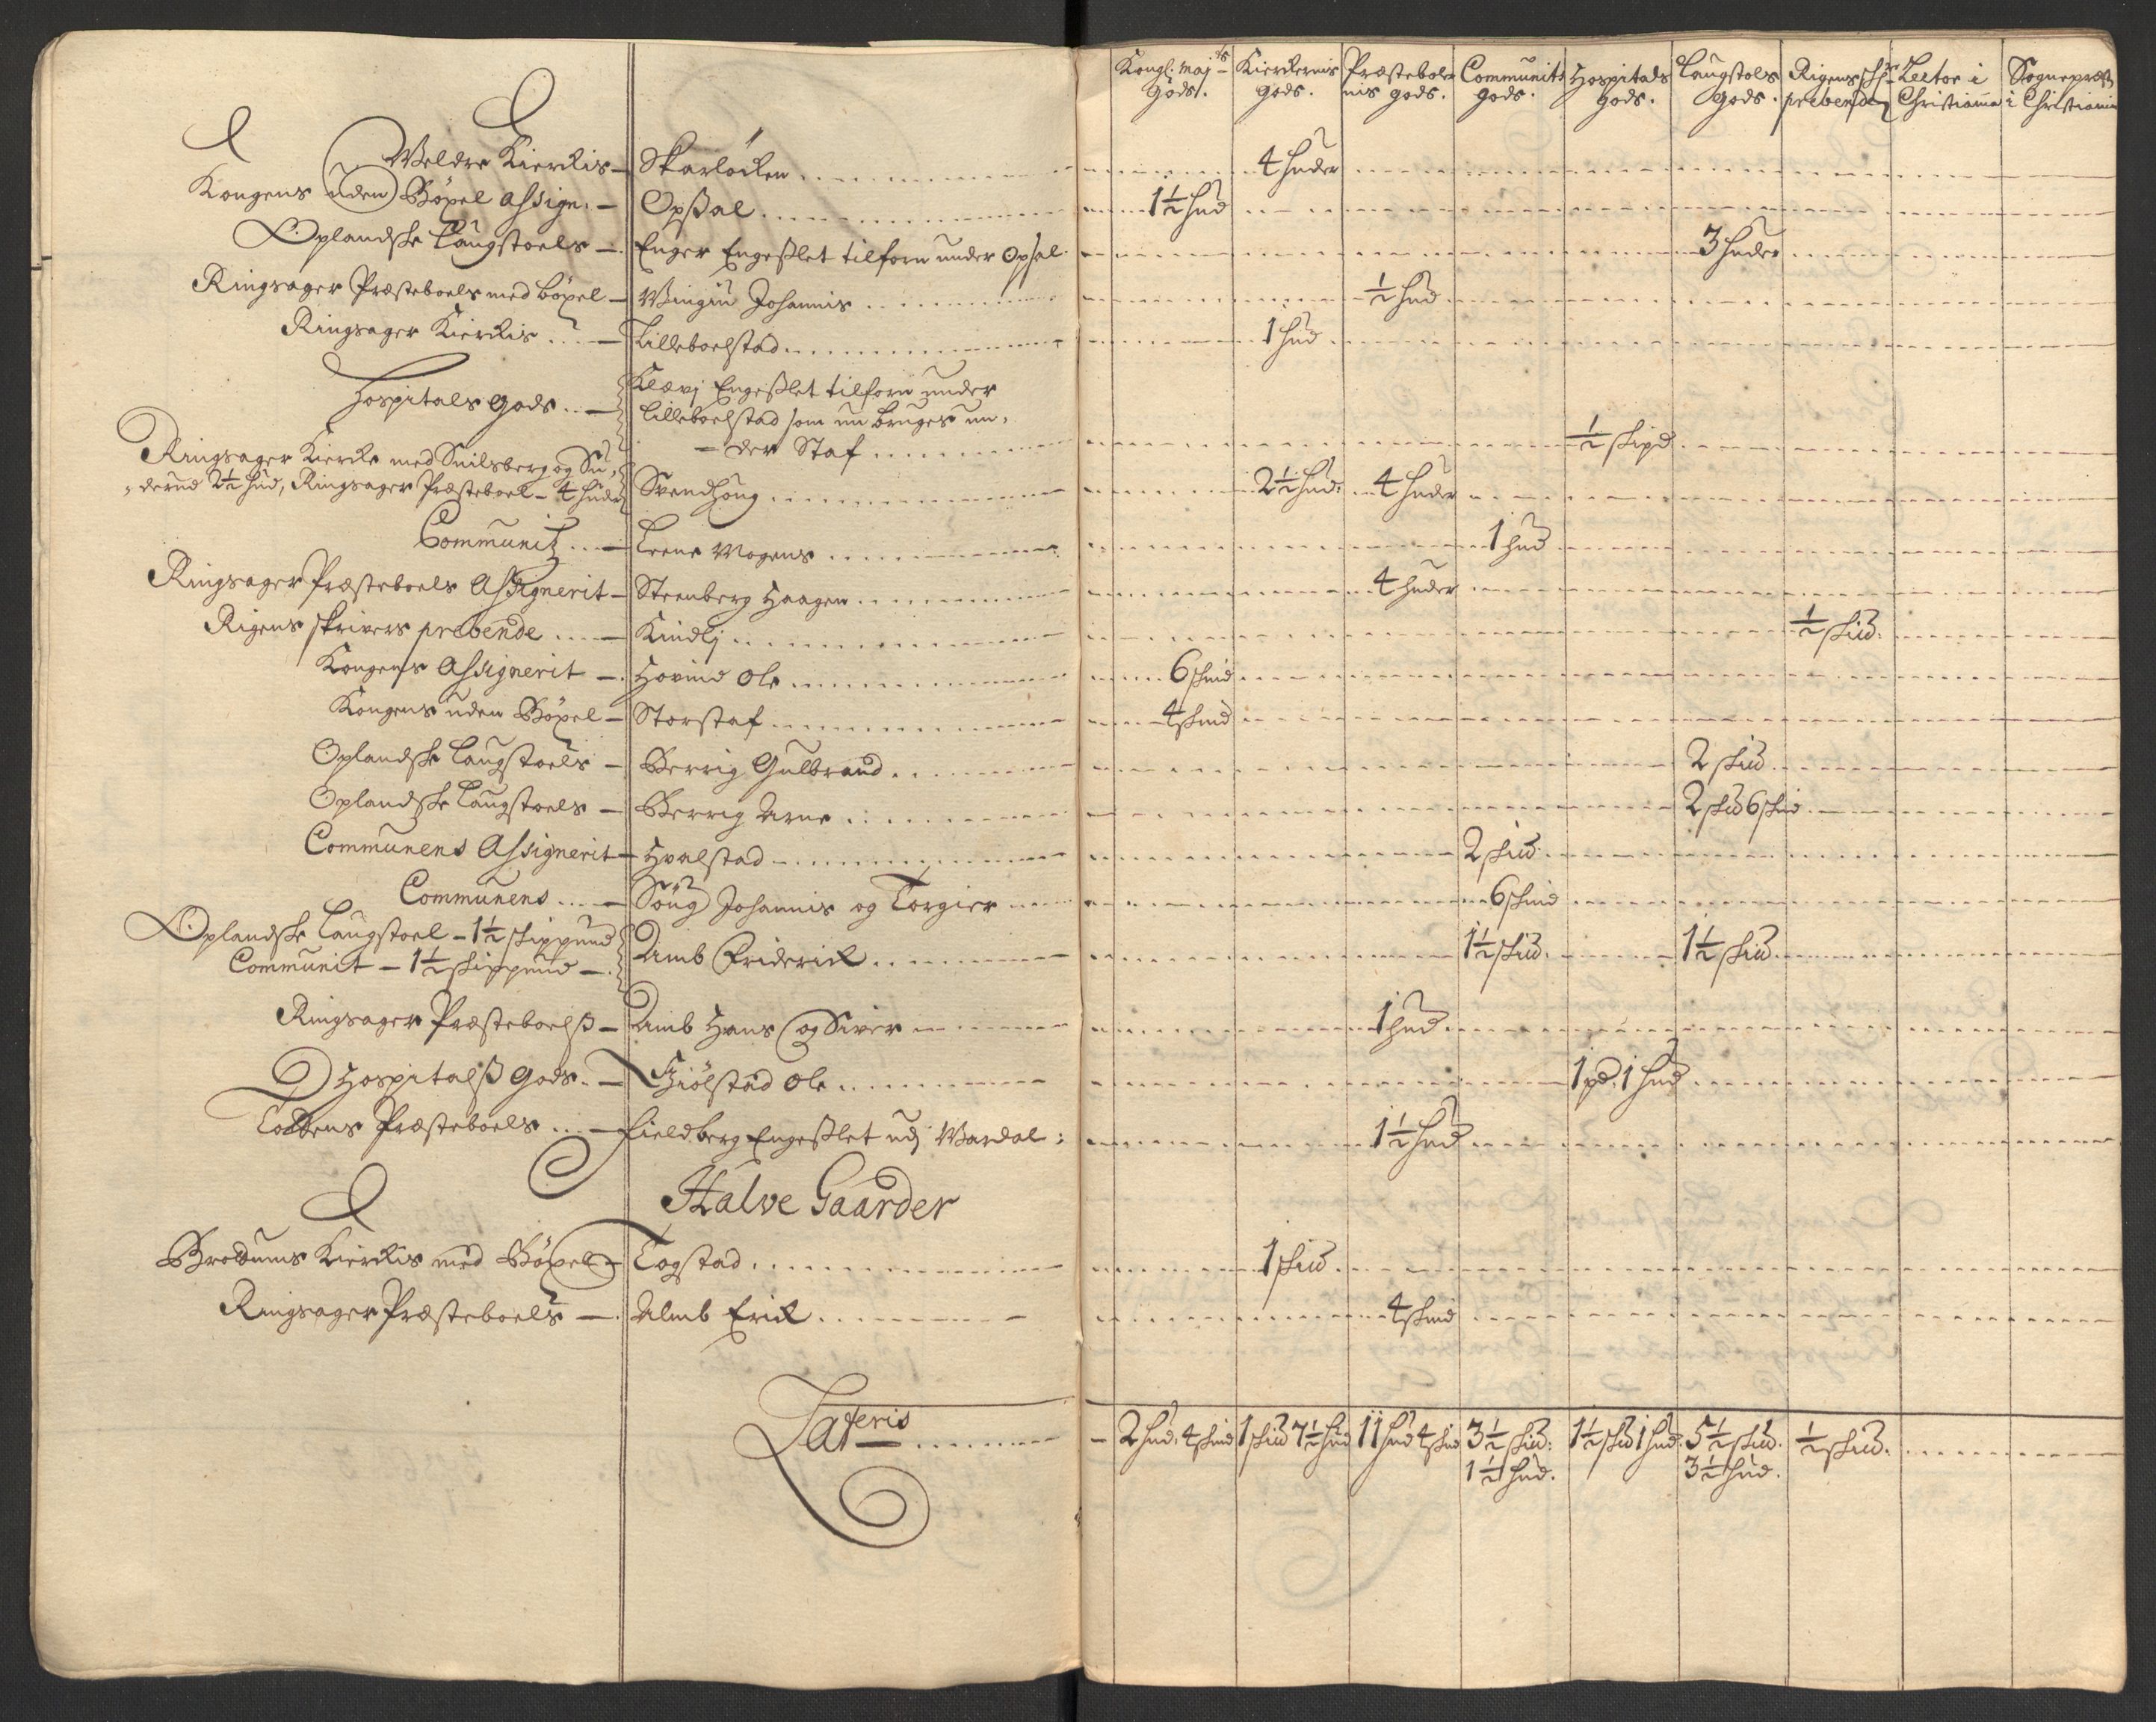 Kongl. Mayts Gods.
Kierckernis gods.
Præstebolernis gods.
Communits gods.
Hospitals gods.
Laugstols Gods.
Rigens Skr prebende
Lector i Christiania
Sognepræst i Christiania
Weldre Kierckis — Skarlöcken 4 huder
Kongens uden Böxel Assign. — Opßal 1½ hud
Oplandske Laugstoels — Enger Engeßlet tilforn under Opsal 3 huder
Ringsager Præsteboels med böxel — Wingiu Johannis ½ hud
Ringsager Kierckis — Lilleboelstad 1 hud
Hospitals gods — Klævj Engeßlet tilforn under
Lilleboelstad som nu bruges un-
der Staf ½ skipd
Ringsager Kiercke med Snilsberg og Su-
derud 2½ hud, Ringsager Præsteboel — 4 huder Svendhoug 2½ hud. 4 huder
Communitz — Leene Mogens 1 hud
Ringsager Præsteboels Assignerit — Steenberg Haagen 4 huder
Rigens skrivers prebende — Kindlj ½ skud.
Kongens Assignerit — Hovind Ole 6 skind
Kongens uden Böxel — Storstaf 4 skind
Oplandske Laugstoels — Berrig Gulbrand 2 skud
Oplandske Laugstoels — Berrig Arne 2 skud 6 skind
Communens Assignerit — Hvalstad 2 skud
Communens — Söug Johannis og Torgier 6 skind
Oplandske Laugstoel — 1½ skippund
Communit — 1½ skippund — Aimb Friderick 1½ skud. 1½ skud
Ringsager Præsteboelß — Aimb Hans og Siver 1 hud.
Hospitalß Gods. — Kiölstad Ole 1 pd. 1 hud
Tottens Præsteboels — Fieldberg Engeßlet udj Wardal: 1½ hud
Halve Gaarder
Brottums Kierckis med Böxel — Togstad 1 skud
Ringsager Præsteboels — Almb Erick 4 skind
Lateris — 2 hud. 4 skind 1 skud 7½ hud 11 hud 4 skind 3½ skud. 1½ skud 1 hud. 5½ skud. ½ skud.
1½ hud. 3½ hud.